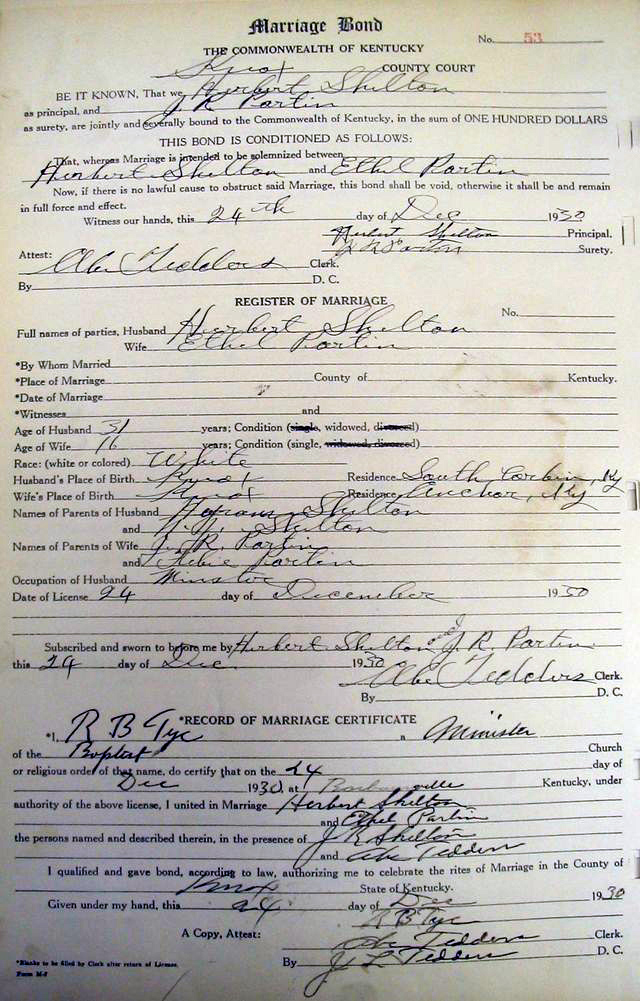 Marriage Bond
No. 53
THE COMMONWEALTH OF KENTUCKY
Knox COUNTY COURT
BE IT KNOWN, That we Herbert Shelton
as principal, and J. R. Partin
as surety, are jointly and severally bound to the Commonwealth of Kentucky, in the sum of ONE HUNDRED DOLLARS
THIS BOND IS CONDITIONED AS FOLLOWS:
That, whereas Marriage is intended to be solemnized between
Herbert Shelton and Ethel Partin
Now, if there is no lawful cause to obstruct said Marriage, this bond shall be void, otherwise it shall be and remain
in full force and effect.
Witness our hands, this 24th day of Dec 1930
Herbert Shelton Principal.
J R Partin Surety.
Attest: Abe Tedders Clerk.
By D. C.
REGISTER OF MARRIAGE
No.
Full names of parties, Husband Herbert Shelton
Wife Ethel Partin
*By Whom Married
*Place of Marriage County of Kentucky.
*Date of Marriage
*Witnesses and
Age of Husband 31 years; Condition (single, widowed, divorced)
Age of Wife 16 years; Condition (single, widowed, divorced)
Race: (white or colored) White
Husband's Place of Birth Knox Residence South Corbin, Ky
Wife's Place of Birth Knox Residence Anchor, Ky
Names of Parents of Husband Shelton
and Shelton
Names of Parents of Wife J. R. Partin
and Partin
Occupation of Husband Minster
Date of License 24 day of December 1930
Subscribed and sworn to before me by Herbert Shelton and J. R. Partin
this 24 day of Dec. 1930
Abe Tedders Clerk.
By D. C.
*RECORD OF MARRIAGE CERTIFICATE
*I, R B Tye a Minister
of the Baptist Church
or religious order of that name, do certify that on the 24 day of
Dec 1930, at Barbourville Kentucky, under
authority of the above license, I united in Marriage Herbert Shelton
and Ethel Partin
the persons named and described therein, in the presence of J R Shelton
and Abe Tedders
I qualified and gave bond, according to law, authorizing me to celebrate the rites of Marriage in the County of
Knox State of Kentucky.
Given under my hand, this 24 day of Dec 1930
R B Tye
A Copy, Attest: Abe Tedders Clerk.
By J L Tedders D. C.
*Blanks to be filled by Clerk after return of License.
Form M-2